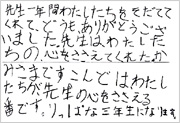 先生一年間わたしたちをそだてて
くれてどうもありがとうござい
ました。先生はわたした
ちの心をささえてくれたか
みさまですこんどはわたし
たちが先生の心をささえる
番です。りっぱな三年生になります。